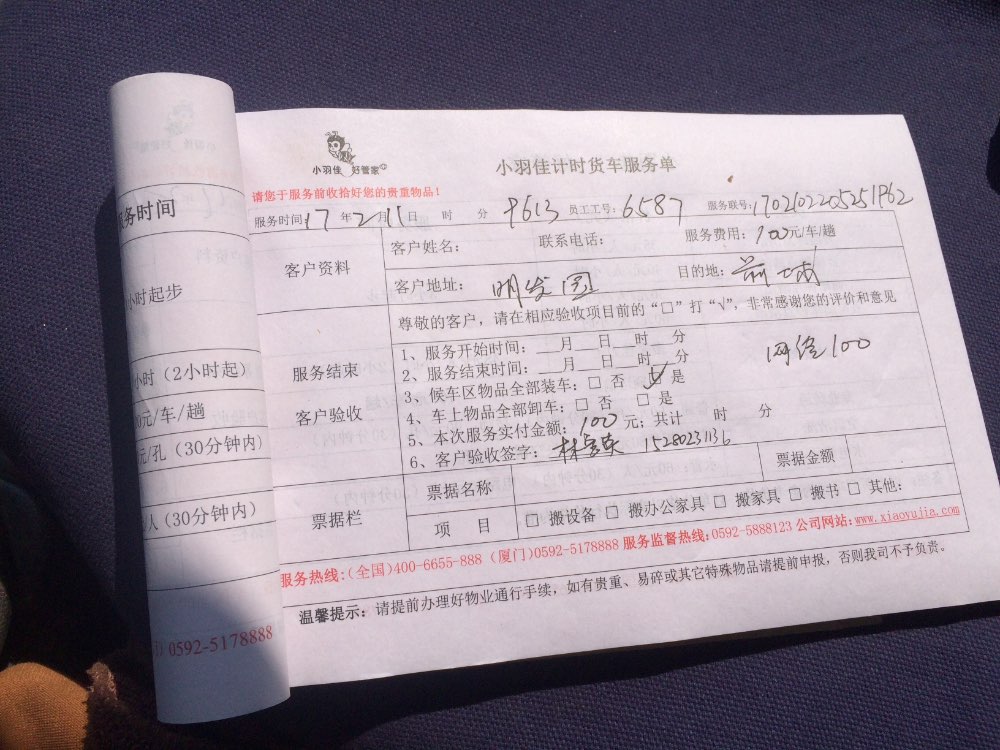 小羽佳 好管家
小羽佳计时货车服务单
请您于服务前收拾好您的贵重物品！
服务时间 17 年 2 月 11 日 时 分 9613 员工工号：6587 服务联号：
客户资料
客户姓名： 联系电话： 服务费用：100元/车/趟
客户地址： 明发园 目的地： 前埔
尊敬的客户，请在相应验收项目前的“□”打“√”，非常感谢您的评价和意见
服务结束
客户验收
1、服务开始时间：__月__日__时__分
2、服务结束时间：__月__日__时__分
3、候车区物品全部装车：□ 否 ☑ 是
4、车上物品全部卸车：□ 否 □ 是
5、本次服务实付金额：100 元；共计 时 分
6、客户验收签字： 15280231136
网络100
票据栏
票据名称
票据金额
项 目
□ 搬设备 □ 搬办公家具 □ 搬家具 □ 搬书 □ 其他：
服务热线：（全国）400-6655-888（厦门）0592-5178888 服务监督热线：0592-5888123 公司网站：www.xiaoyujia.com
温馨提示：请提前办理好物业通行手续，如有贵重、易碎或其它特殊物品请提前申报，否则我司不予负责。
服务时间
小时起步
小时（2小时起）
元/车/趟
元/孔（30分钟内）
人（30分钟内）
0592-5178888